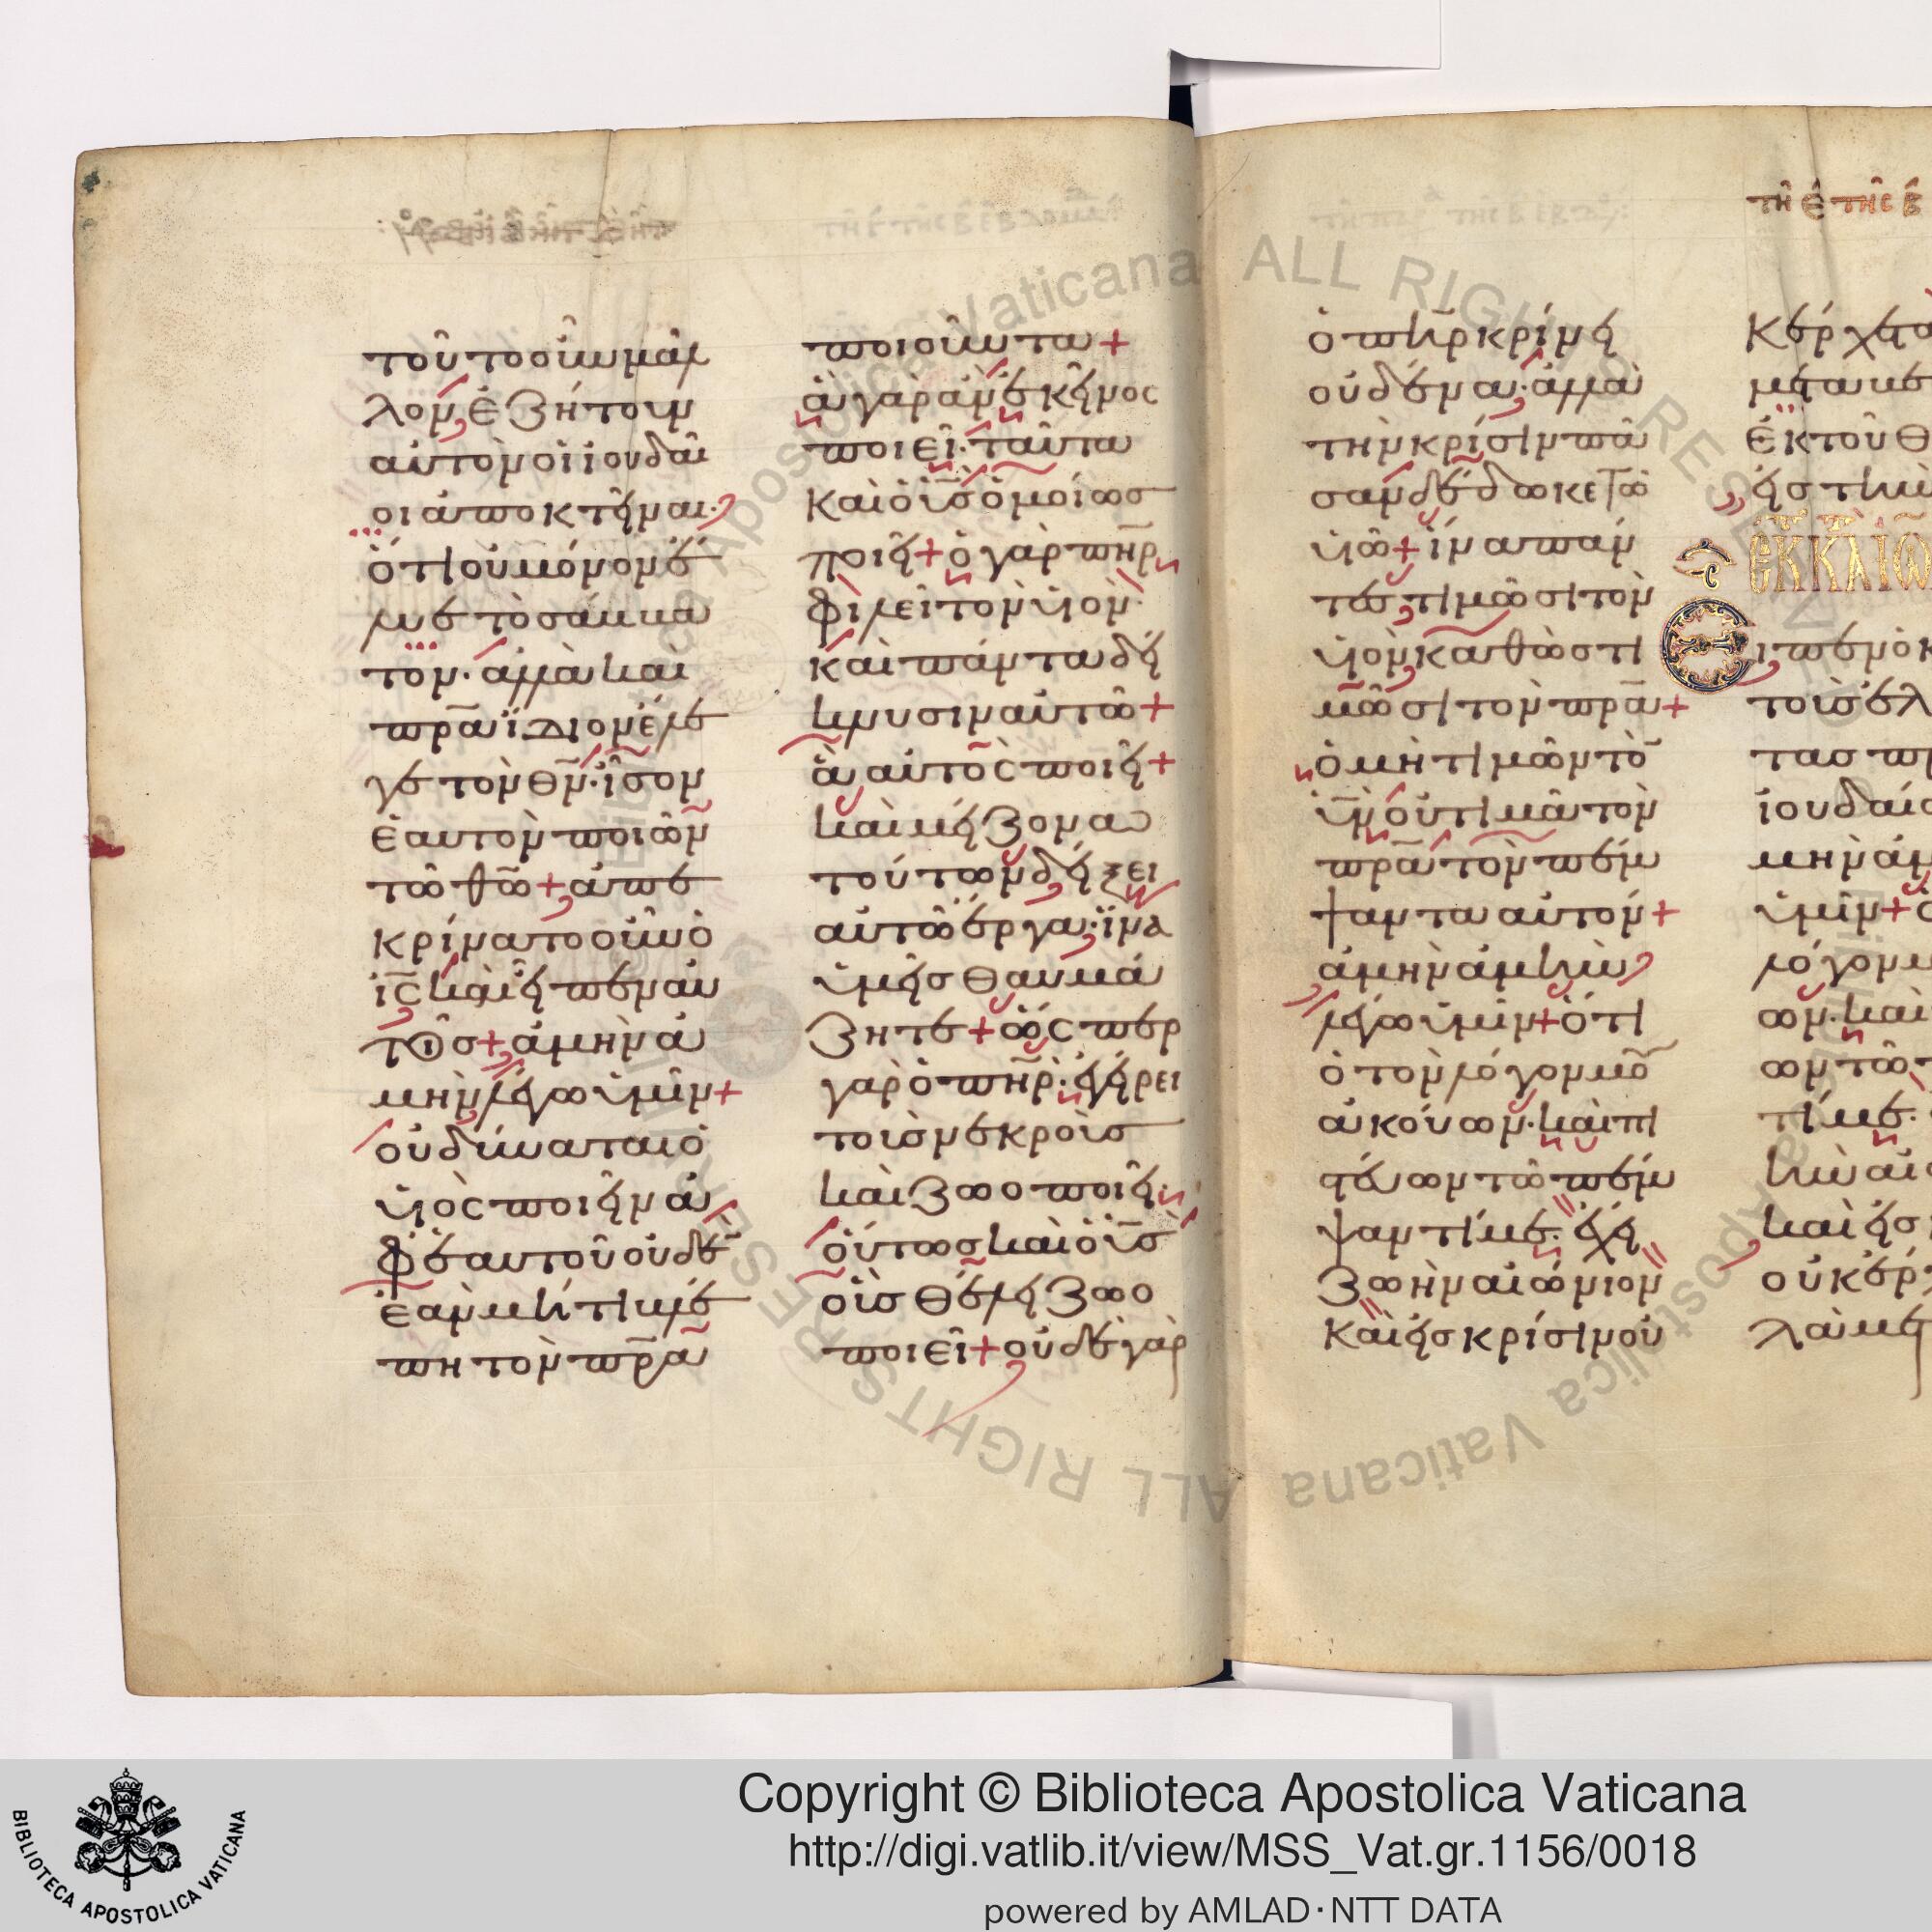 τοῦτο οὖν μᾶλ
λον ἐζήτουν
αὐτὸν οἱ ἰουδαῖ
οι ἀποκτεῖναι·
ὅτι οὐ μόνον ἔ
λυε τὸ σάββα
τον· ἀλλὰ καὶ
πρ̅α ἴδιον ἔλε
γε τὸν θ̅ν· ἴσον
ἑαυτὸν ποιῶν
τῶ θ̅ω + ἀπε
κρίνατο οὖν ὁ
ι̅ς καὶ εἶπεν αὐ
τοῖς + ἀμὴν ἀ
μὴν λέγω ὑμῖν +
οὐ δύναται ὁ
υἱὸς ποιεῖν ἀ
φ' ἑαυτοῦ οὐδὲν
ἐὰν μή τι βλέ
πη τὸν πρ̅α
ποιοῦντα +
ἃ γὰρ ἂν ἐκεῖνος
ποιεῖ· ταῦτα
καὶ ὁ υ̅ς ὁμοίως
ποιεῖ + ὁ γὰρ πη̅ρ
φιλεῖ τὸν υἱόν·
καὶ πάντα δεί
κνυσιν αὐτῶ +
ἃ αὐτὸς ποιεῖ +
καὶ μείζονα
τούτων δείξει
αὐτῶ ἔργα· ἵνα
ὑμεῖς θαυμά
ζητε + ὥσπερ
γὰρ ὁ πη̅ρ· ἐγείρει
τοὺς νεκροὺς
καὶ ζωοποιεῖ·
οὕτως καὶ ὁ υ̅ς
οὓς θέλει ζωο
ποιεῖ + οὐδὲ γὰρ
ὁ πη̅ρ κρίνει
οὐδένα· ἀλλὰ
τὴν κρίσιν πᾶ
σαν δέδωκε τῶ
υἱῶ + ἵνα πάν
τες τιμῶσι τὸν
υἱὸν καθὼς τι
μῶσι τὸν πρ̅α +
ὁ μὴ τιμῶν τὸν
υ̅ν οὐ τιμᾶ τὸν
πρ̅α τὸν πέμ
ψαντα αὐτόν +
ἀμὴν ἀμὴν
λέγω ὑμῖν + ὅτι
ὁ τὸν λόγον μου
ἀκούων· καὶ πι
στεύων τῶ πέμ
ψαντί με· ἔχει
ζωὴν αἰώνιον
καὶ εἰς κρίσιν οὐ
τῆ ε τῆς β
κ ἔρχετα
μετα
ἐκ τοῦ θ
εἰς τὴν
ἐκ κ ἰω
Εἶπεν ὁ κ
τοὺς ἐλ
τας π
ἰουδαίο
μὴν ἀμ
ὑμῖν + ὁ
λόγον μ
ων· καὶ
ων τῶ
τί με·
ην αἰ
καὶ εἰς
οὐκ ἔρ
λὰ με
Copyright © Biblioteca Apostolica Vaticana
http://digi.vatlib.it/view/MSS_Vat.gr.1156/0018
powered by AMLAD·NTT DATA
BIBLIOTECA APOSTOLICA VATICANA